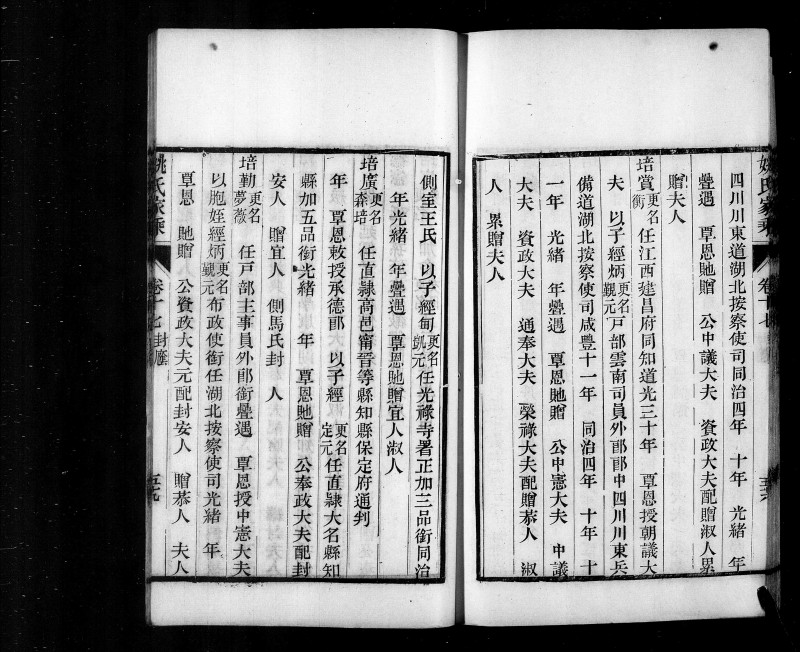 四川川東道湖北按察使司同治四年　十年　光緒　年
疊遇　覃恩貤贈　公中議大夫　資政大夫配贈淑人累
贈夫人
培賞更名衡任江西建昌府同知道光三十年　覃恩授朝議大
夫　以子經炳更名覲元戶部雲南司員外郎郎中四川川東兵
備道湖北按察使司咸豐十一年　同治四年　十年　十
一年　光緒　年疊遇　覃恩貤贈　公中憲大夫　中議
大夫　資政大夫　通奉大夫　榮祿大夫配贈恭人　淑
人　累贈夫人
姚氏家乘　卷十七
姚氏家乘　卷十七　封廕
側室王氏　以子經甸更名凱元任光祿寺署正加三品銜同治
年光緒　年疊遇　覃恩貤贈宜人淑人
培廣更名森培　任直隸高邑甯晉等縣知縣保定府通判
年　覃恩敕授承德郎　以子經　更名定元任直隸大名縣知
縣加五品銜光緒　年　覃恩貤贈　公奉政大夫配封
安人　贈宜人　側馬氏封　人
培勤更名夢薇　任戶部主事員外郎銜疊遇　覃恩授中憲大夫
以胞姪經炳更名覲元布政使銜任湖北按察使司光緒　年
覃恩　貤贈　公資政大夫元配封安人　贈恭人　夫人